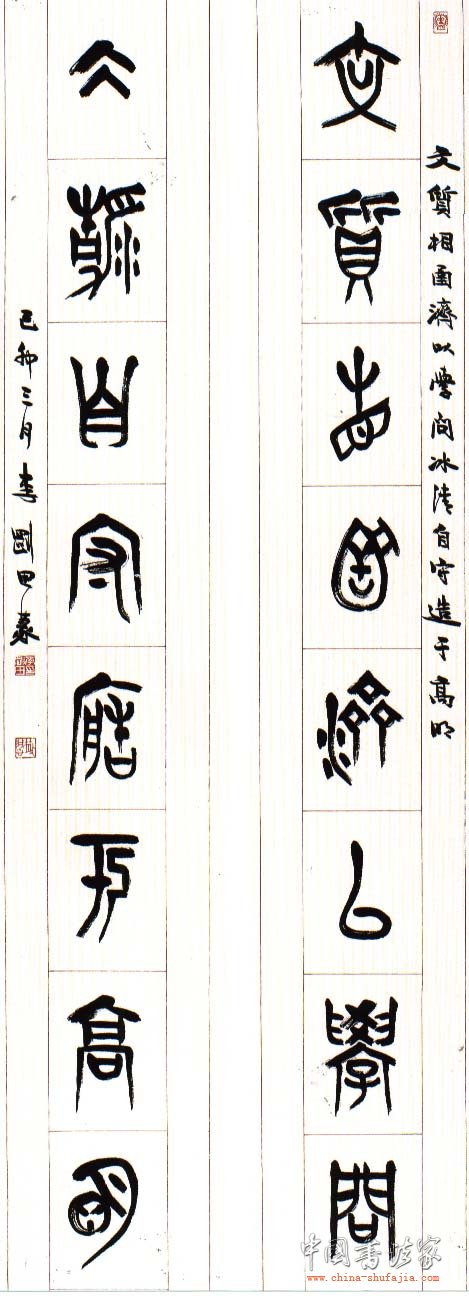 文質相圅濟以學問冰清自守造于高明
文質相圅濟以學問
冰清自守造于高明
己卯三月李國田
中國書法家
www.china-shufajia.com